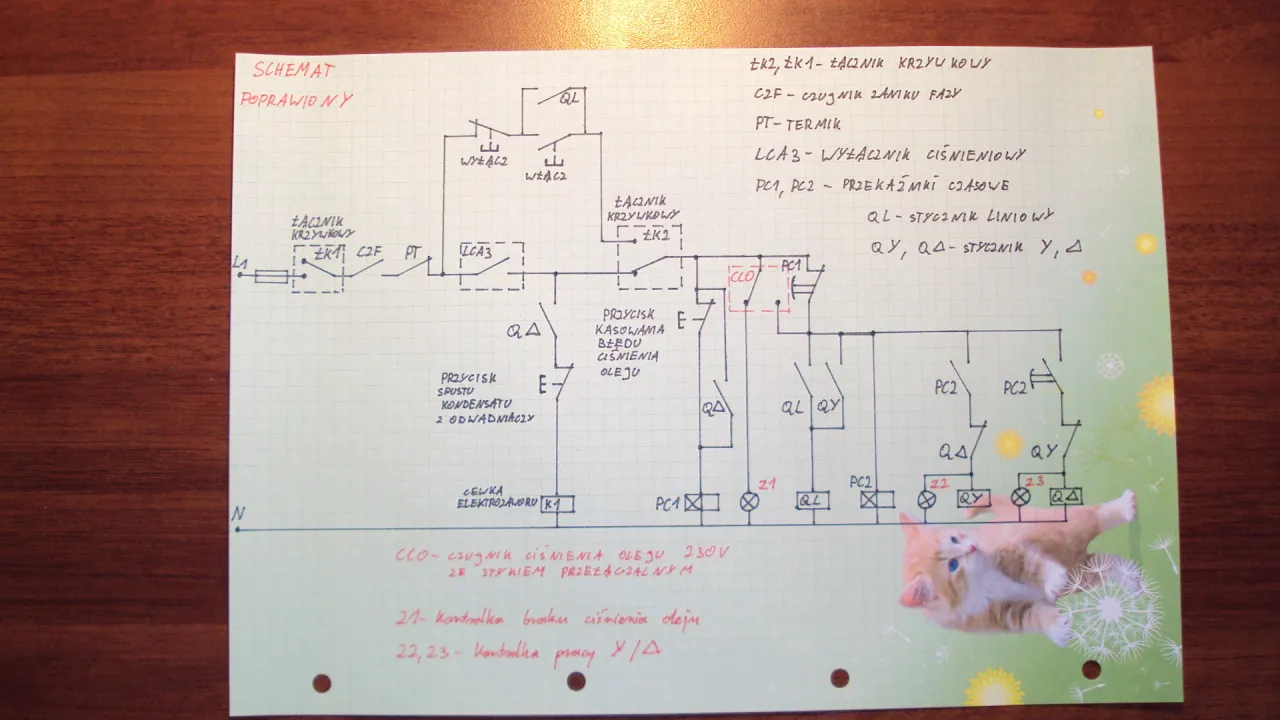 SCHEMAT
POPRAWIONY
ŁK2, ŁK1 - ŁĄCZNIK KRZYWKOWY
CZF - CZUJNIK ZANIKU FAZY
PT - TERMIK
LCA3 - WYŁĄCZNIK CIŚNIENIOWY
PC1, PC2 - PRZEKAŹNIKI CZASOWE
QL - STYCZNIK LINIOWY
QY, QΔ - STYCZNIK Y, Δ
QL
WYŁĄCZ
WŁĄCZ
ŁĄCZNIK
KRZYWKOWY
ŁK2
ŁĄCZNIK
KRZYWKOWY
ŁK1
CZF
PT
LCA3
L1
CLO
PC1
QΔ
PRZYCISK
KASOWANIA
BŁĘDU
CIŚNIENIA
OLEJU
PRZYCISK
SPUSTU
KONDENSATU
Z ODWADNIACZY
QΔ
QL
QY
PC2
PC2
QΔ
QY
CEWKA
ELEKTROZAWORU
K1
PC1
Z1
QL
PC2
Z2
QY
Z3
QΔ
N
CCO - CZUJNIK CIŚNIENIA OLEJU 230V
ZE STYKIEM PRZEŁĄCZALNYM
Z1 - Kontrolka braku ciśnienia oleju
Z2, Z3 - Kontrolka pracy Y/Δ